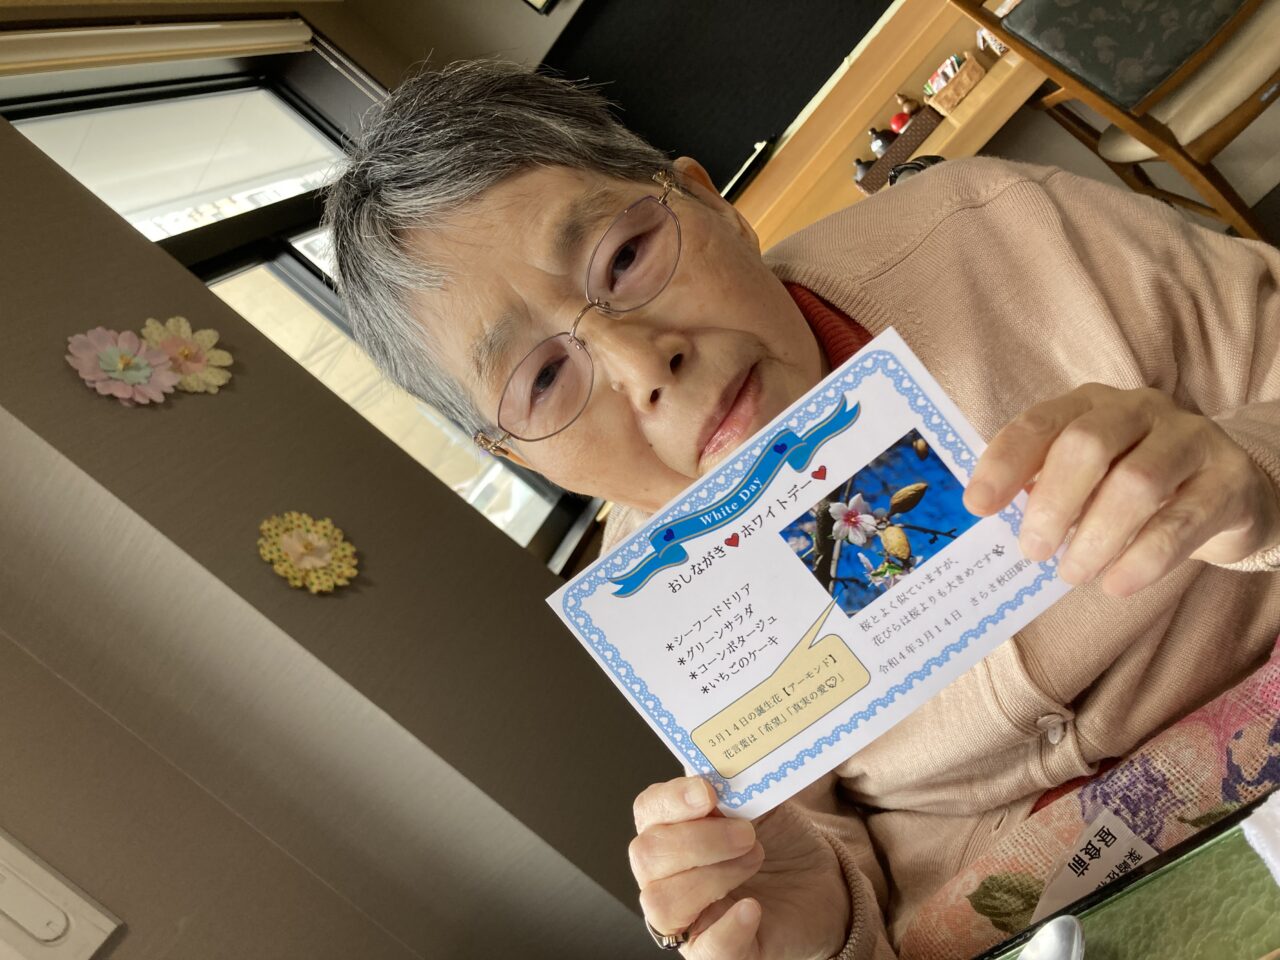 White Day
おしながき♥ホワイトデー♥
＊シーフードドリア
＊グリーンサラダ
＊コーンポタージュ
＊いちごのケーキ
3月14日の誕生花【アーモンド】
花言葉は「希望」「真実の愛♡」
桜とよく似ていますが、
花びらは桜よりも大きめです
令和4年3月14日　さらさ秋田駅前
昼食前